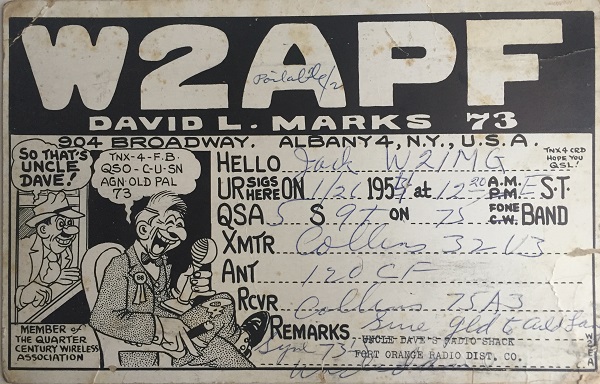 W2APF
Portable/2
DAVID L. MARKS 73
904 BROADWAY. ALBANY 4, N.Y., U.S.A.
SO THAT'S UNCLE DAVE!
TNX-4-F.B.
QSO-C-U-SN
AGN OLD PAL
73
HELLO Jack W2IMG
TNX 4 CRD
HOPE YOU
QSL!
UR SIGS HERE ON 1/26 195 at 12 20 A.M. P.M. E.S.T.
QSA 5 S 9+ ON 75 FONE C.W. BAND
XMTR Collins 32V3
ANT 120 CF
RCVR Collins 75A3
REMARKS Sure gld to
73
UNCLE DAVE'S RADIO SHACK
FORT ORANGE RADIO DIST. CO.
MEMBER OF
THE QUARTER
CENTURY WIRELESS
ASSOCIATION